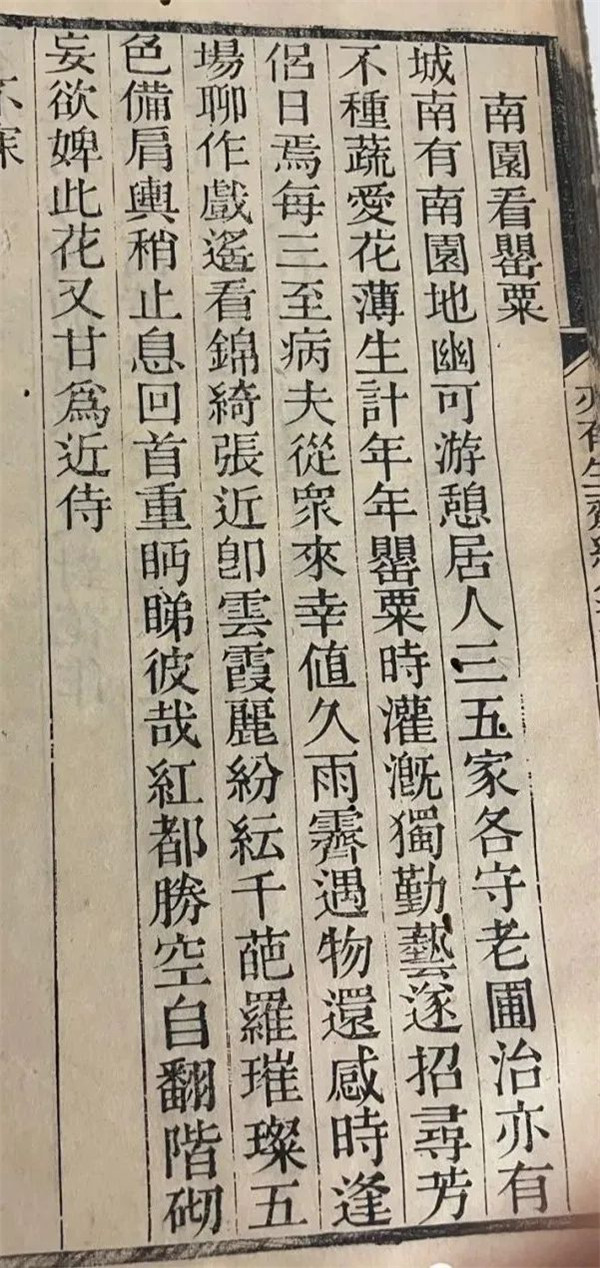 南園看罌粟
城南有南園地幽可游憩居人三五家各守老圃治亦有
不種蔬愛花薄生計年年罌粟時灌漑獨勤藝遂招尋芳
侶日焉每三至病夫從衆來幸值久雨霽遇物還感時逢
場聊作戲遙看錦綺張近卽雲霞麗紛紜千葩羅璀璨五
色備肩輿稍止息回首重眄睇彼哉紅都勝空自翻階砌
妄欲婢此花又甘爲近侍